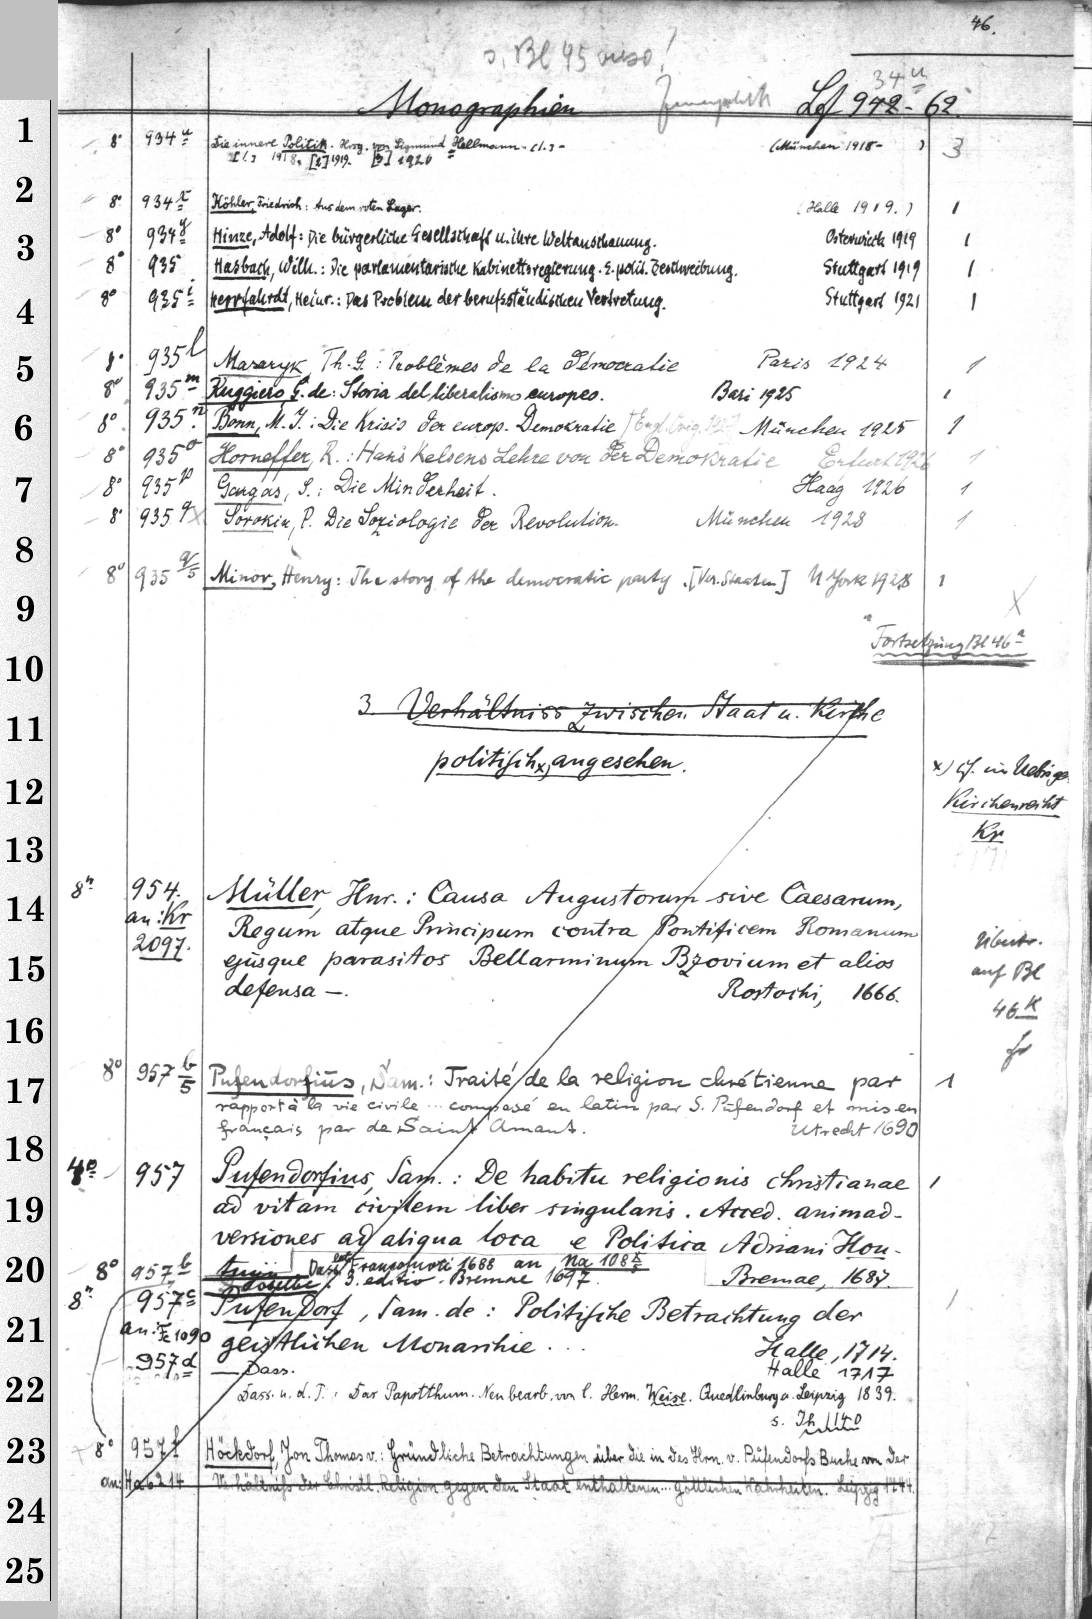 46.
s. Bl 45 verso!
Monographien Lgf 942 - 62.
34 u
8° 934 u Die innere Politik. Hrsg. von Sigmund Hellmann. (1.) - (München 1918- ) 3
[1.] 1918, [2] 1919. [3] 1920
8° 934 x Köhler, Friedrich: Aus dem roten Lager. (Halle 1919.) 1
8° 934 y Hinze, Adolf: Die bürgerliche Gesellschaft u. ihre Weltanschauung. Osterwieck 1919 1
8° 935 Hasbach, Wilh.: Die parlamentarische Kabinettsregierung. E. polit. Beschreibung. Stuttgart 1919 1
8° 935 i Herrfahrdt, Heinr.: Das Problem der berufsständischen Vertretung. Stuttgart 1921 1
8° 935 l Masaryk, Th. G.: Problèmes de la Démocratie Paris 1924 1
8° 935 m Ruggiero, G. de: Storia del liberalismo europeo. Bari 1925 1
8° 935 n Bonn, M. J.: Die Krisis der europ. Demokratie München 1925 1
8° 935 o Horneffer, R.: Hans Kelsens Lehre von der Demokratie Erfurt 1926 1
8° 935 p Gargas, S.: Die Minderheit. Haag 1926 1
8° 935 q Sorokin, P. Die Soziologie der Revolution. München 1928 1
8° 935 q/5 Minor, Henry: The story of the democratic party. [Ver. Staaten] N York 1928 1
Fortsetzung Bl 46 a
3. Verhältniss zwischen Staat u. Kirche
politisch x) angesehen.
x) Cf. im Uebrigen
Kirchenrecht
Kr
8° 954. Müller, Hnr.: Causa Augustorum sive Caesarum,
an: Kr Regum atque Principum contra Pontificem Romanum
2097. ejusque parasitos Bellarminum Bzovium et alios
defensa —. Rostochi, 1666.
auf Bl
46 K
8° 957 b/5 Pufendorfius, Sam.: Traité de la religion chrétienne par 1
rapport à la vie civile ... composé en latin par S. Pufendorf et mis en
français par de Saint Amant. Utrecht 1690
4° 957 Pufendorfius, Sam.: De habitu religionis christianae 1
ad vitam civilem liber singularis. Acced. animad-
versiones ad aliqua loca e Politica Adriani Hou-
8° 957 b tuyn Bremae, 1687.
Dasselbe. 3. editio. Bremae 1697.
8° 957 c Pufendorf, Sam. de: Politische Betrachtung der
an: Fc 1090 geistlichen Monarchie ... Halle, 1714.
957 d — Dass. Halle 1717
Dass. u. d. T.: Das Papstthum. Neu bearb. von C. Herm. Weise. Quedlinburg u. Leipzig 1839.
8° 957 f Höckdorf, Jon Thomas v.: Gründliche Betrachtungen über die in des Hrn. v. Pufendorfs Buche von der
an: Ha 6214 Verhältniß der Christl. Religion gegen den Staat enthaltenen ... göttlichen Wahrheiten. Leipzig 1744.
1
2
3
4
5
6
7
8
9
10
11
12
13
14
15
16
17
18
19
20
21
22
23
24
25